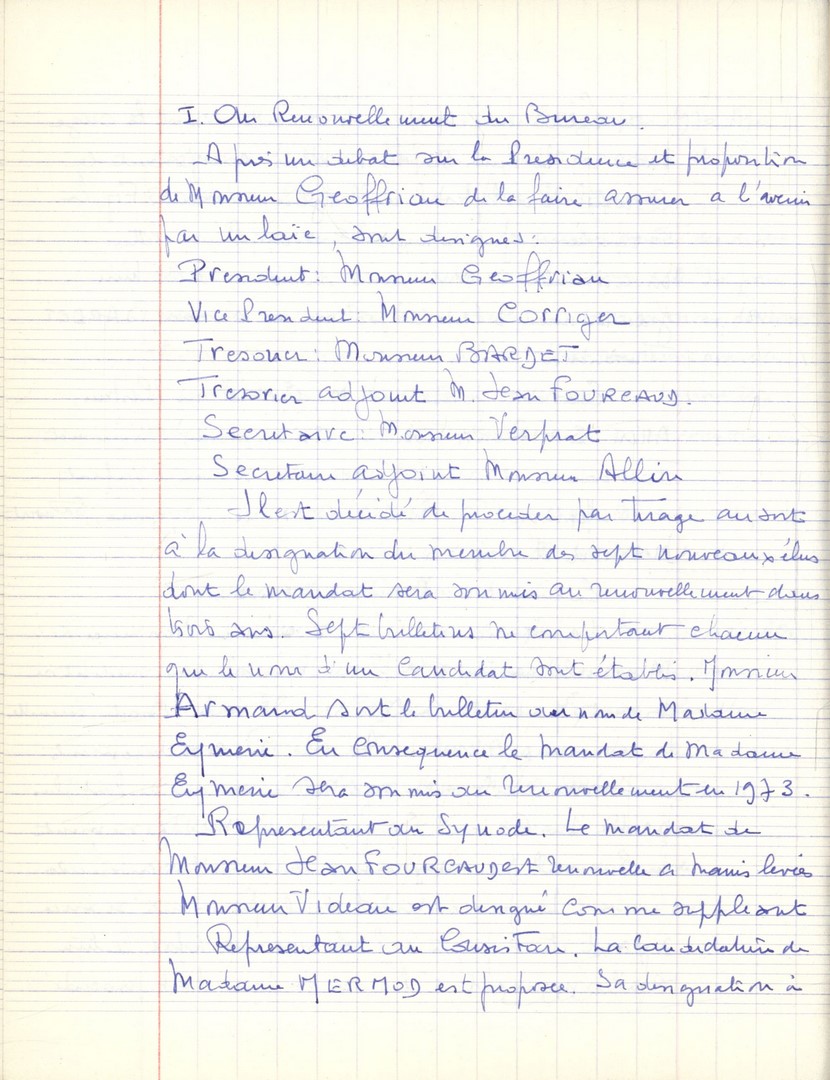 I. Au Renouvellement du Bureau.
Après un debat sur la Presidence et proposition
de Monsieur Geoffriau de la faire assurer a l'avenir
par un laïc, sont designes:
President: Monsieur Geoffriau
Vice President: Monsieur Corriger
Tresorier: Monsieur BARDET
Tresorier adjoint M. Jean FOURCAUD.
Secretaire: Monsieur Verprat
Secretaire adjoint Monsieur Allin
Il est décidé de proceder par tirage au sort
à la designation du membre des sept nouveaux élus
dont le mandat sera soumis au renouvellement dans
trois ans. Sept bulletins ne comportant chacun
que le nom d'un Candidat sont établis. Monsieur
Armand sort le bulletin au nom de Madame
Eymerie. En Consequence le mandat de Madame
Eymerie sera soumis au renouvellement en 1973.
Representant au Synode. Le mandat de
Monsieur Jean FOURCAUD est renouvelle a mains levées
Monsieur Videau est designé comme suppleant
Representant au Consistoire. La Candidature de
Madame MERMOD est proposee. Sa designation à